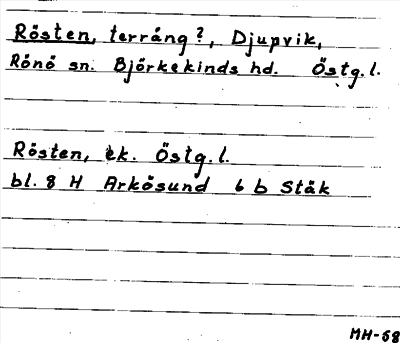 Rösten, terräng?, Djupvik,
Rönö sn. Björkekinds hd. Östg.l.
Rösten, ek. Östg.l.
bl. 8 H Arkösund 6 b Stäk
MH-68